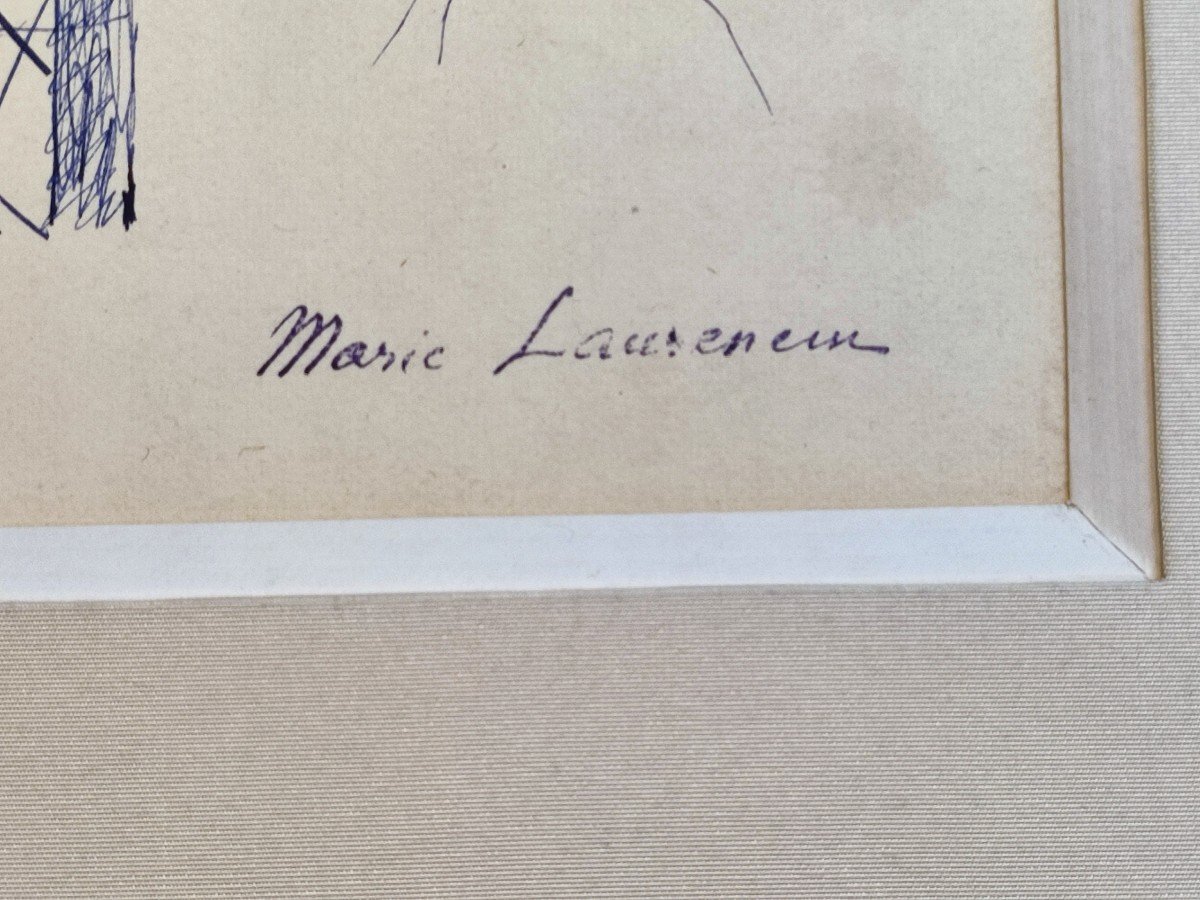 Marie Laurencin